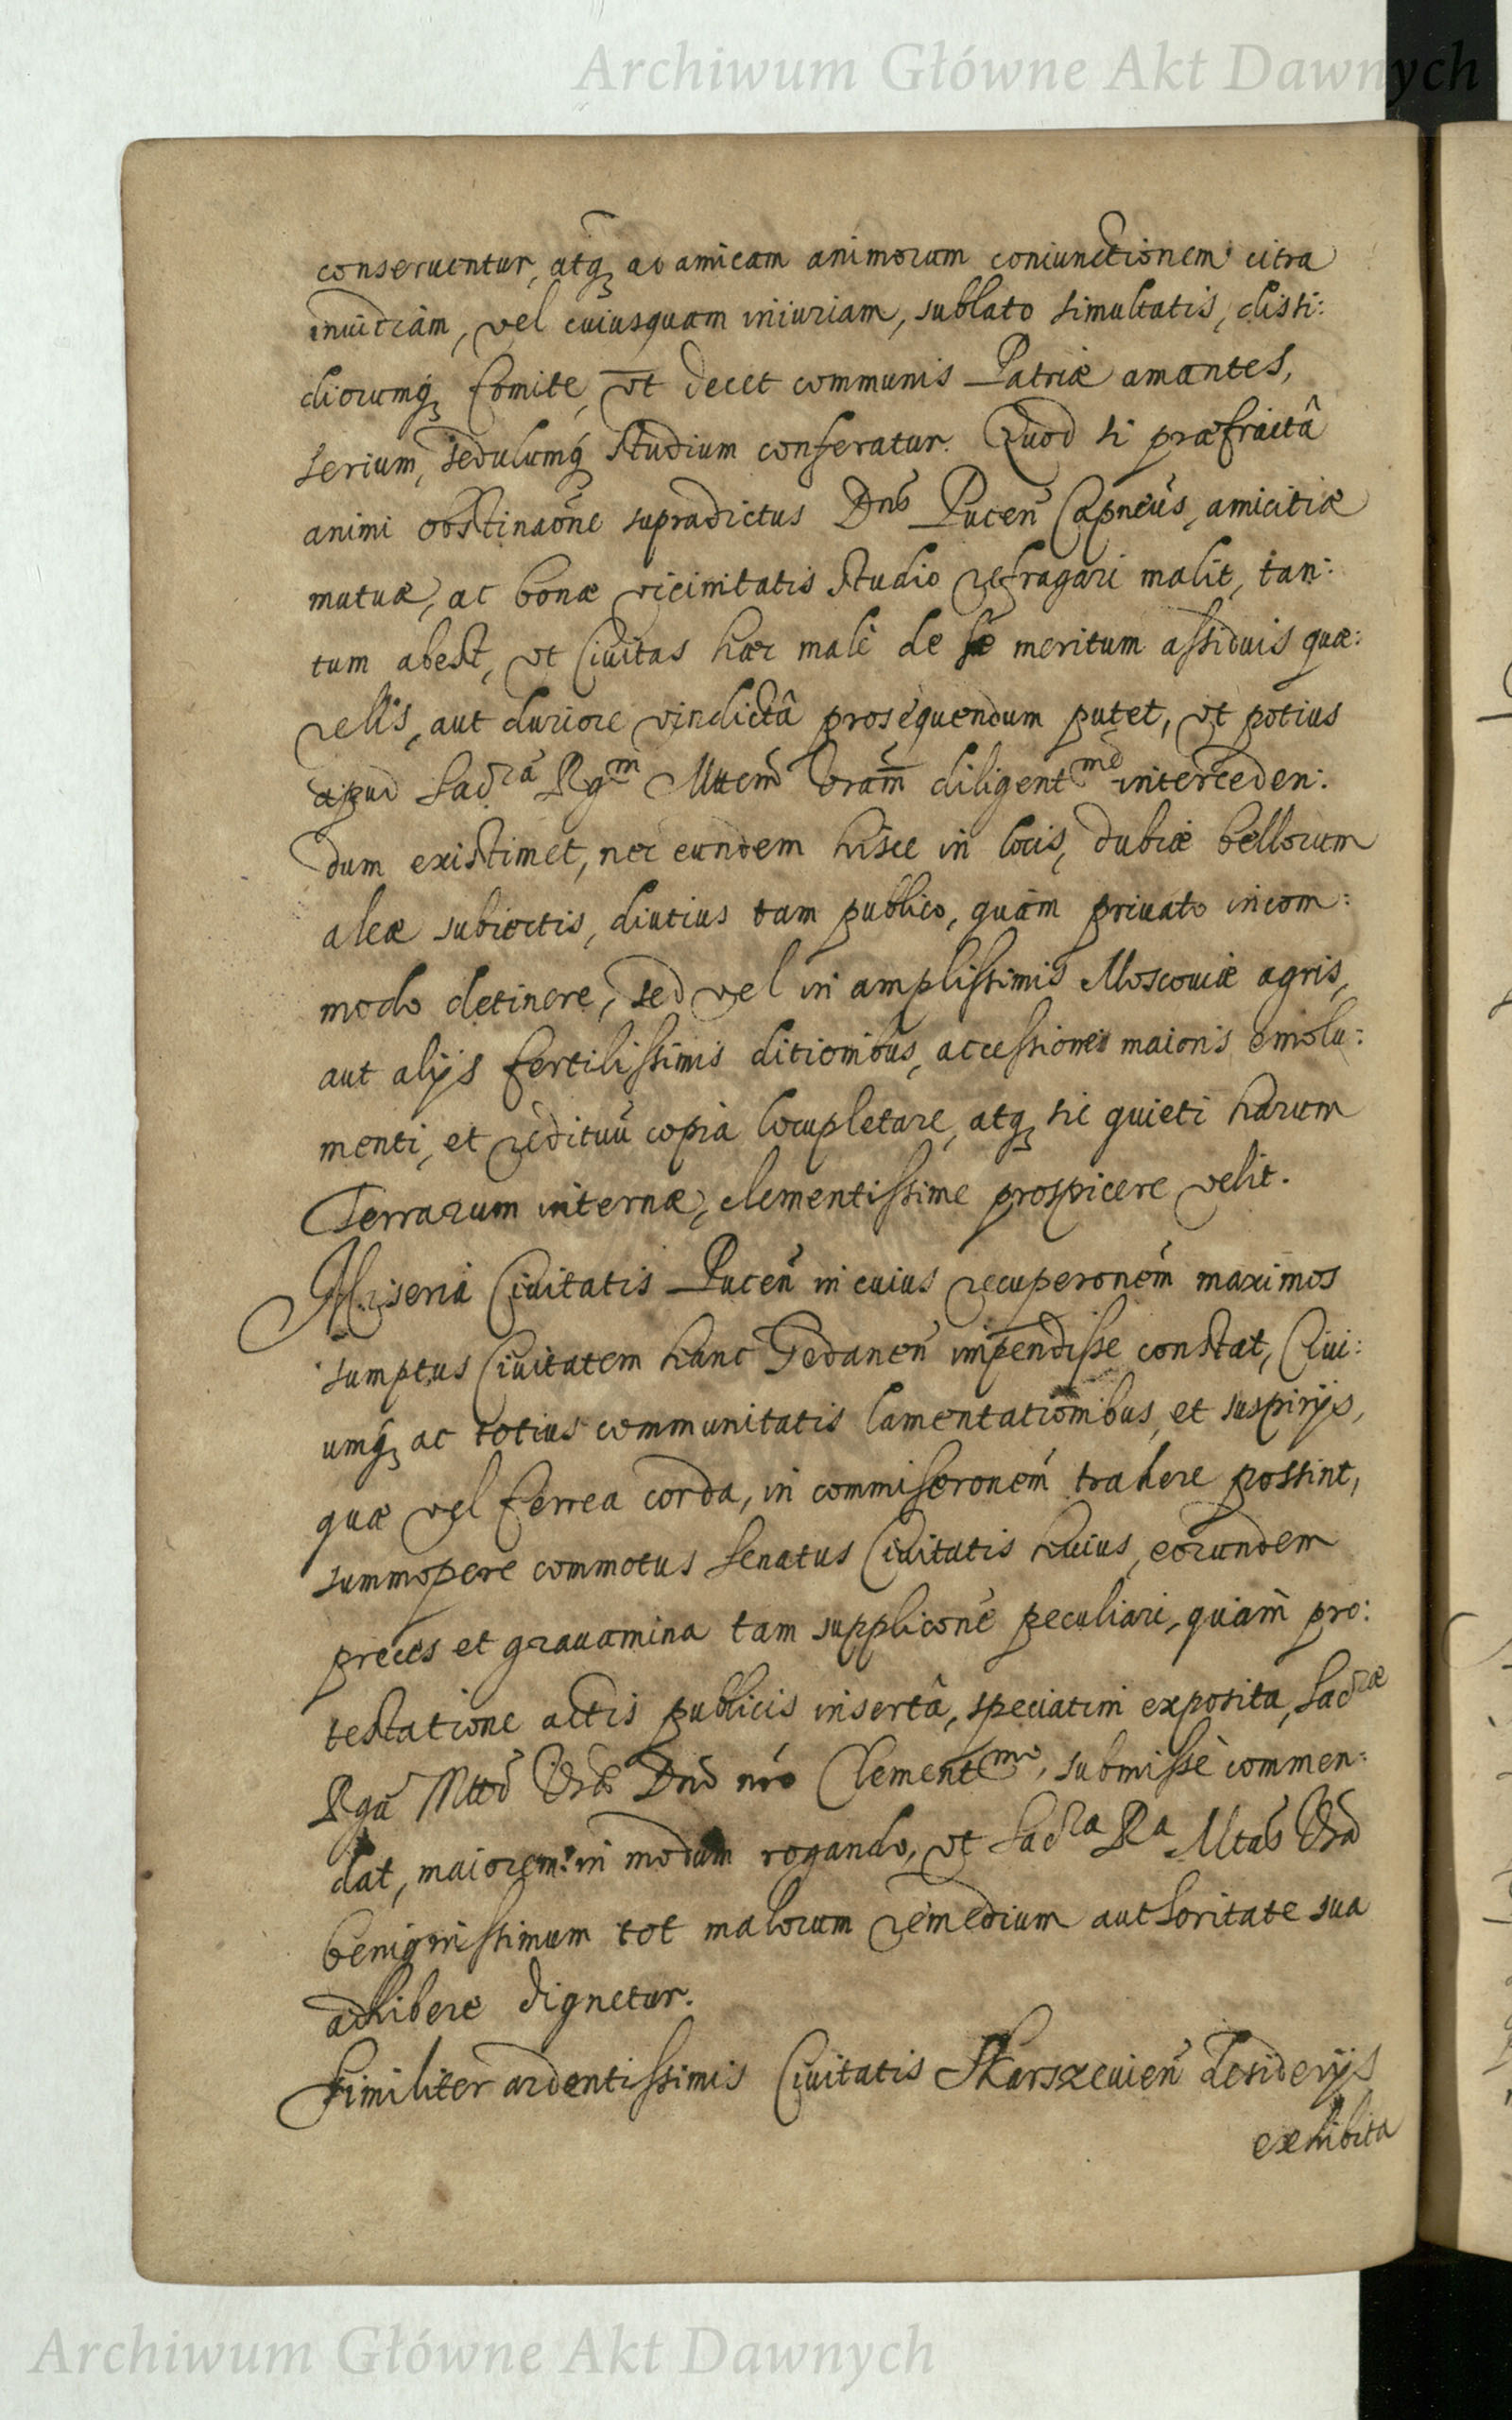 Archiwum Główne Akt Dawnych
conseruentur, atq₃ ad amicam animorum coniunctionem citra
inuidiam, vel cuiusquam iniuriam, sublato simultatis, dissi:
diorumq₃ fomite, vt decet communis Patriæ amantes,
serium, sedulumq₃ studium conferatur. Quod si præfractâ
animi obstinaōne supradictus Dnūs Pucen̄ Capneūs, amicitiæ
mutuæ, ac bonæ vicinitatis studio refragari malit, tan:
tum abest, vt Ciuitas hæc malè de se meritum assiduis quæ:
relis, aut duriore vindictâ prosequendum putet, vt potius
apud Sac̄ra̅ Rg̅m Mttem̄ Vram̄ diligentme̅ interceden:
dum existimet, nec eundem hisce in locis, dubiæ bellorum
aleæ subiectis, diutius tam publico, quàm priuato incom:
modo detinere, sed vel in amplissimis Moscouiæ agris,
aut alijs fertilissimis ditionibus, accessiones maioris emolu:
menti, et redituū copia locupletare, atq₃ sic quieti harum
Terrarum internæ, clementissime prospicere velit.
Miseria Ciuitatis Pucen̄ in cuius recuperonēm maximos
sumptus Ciuitatem hanc Gedanen̄ impendisse constat, Ciui:
umq₃ ac totius communitatis lamentationibus, et suspirijs,
quæ vel ferrea corda, in commiseronēm trahere possint,
summopere commotus Senatus Ciuitatis huius, eorundem
preces et grauamina tam supplicōne peculiari, quàm pro:
testatione actis publicis insertâ, speciatim exposita, Sac̄ræ
Rgiæ Mttī Vræ Dnō nrō Clementmo, submissè commen:
dat, maiorem in modum rogando, vt Sac̄ra Ra Mtas̄ Vrā
benignissimum tot malorum remedium authoritate sua
adhibere dignetur.
Similiter ardentissimis Ciuitatis Skarszeuien̄ desiderijs
exhibita
Archiwum Główne Akt Dawnych